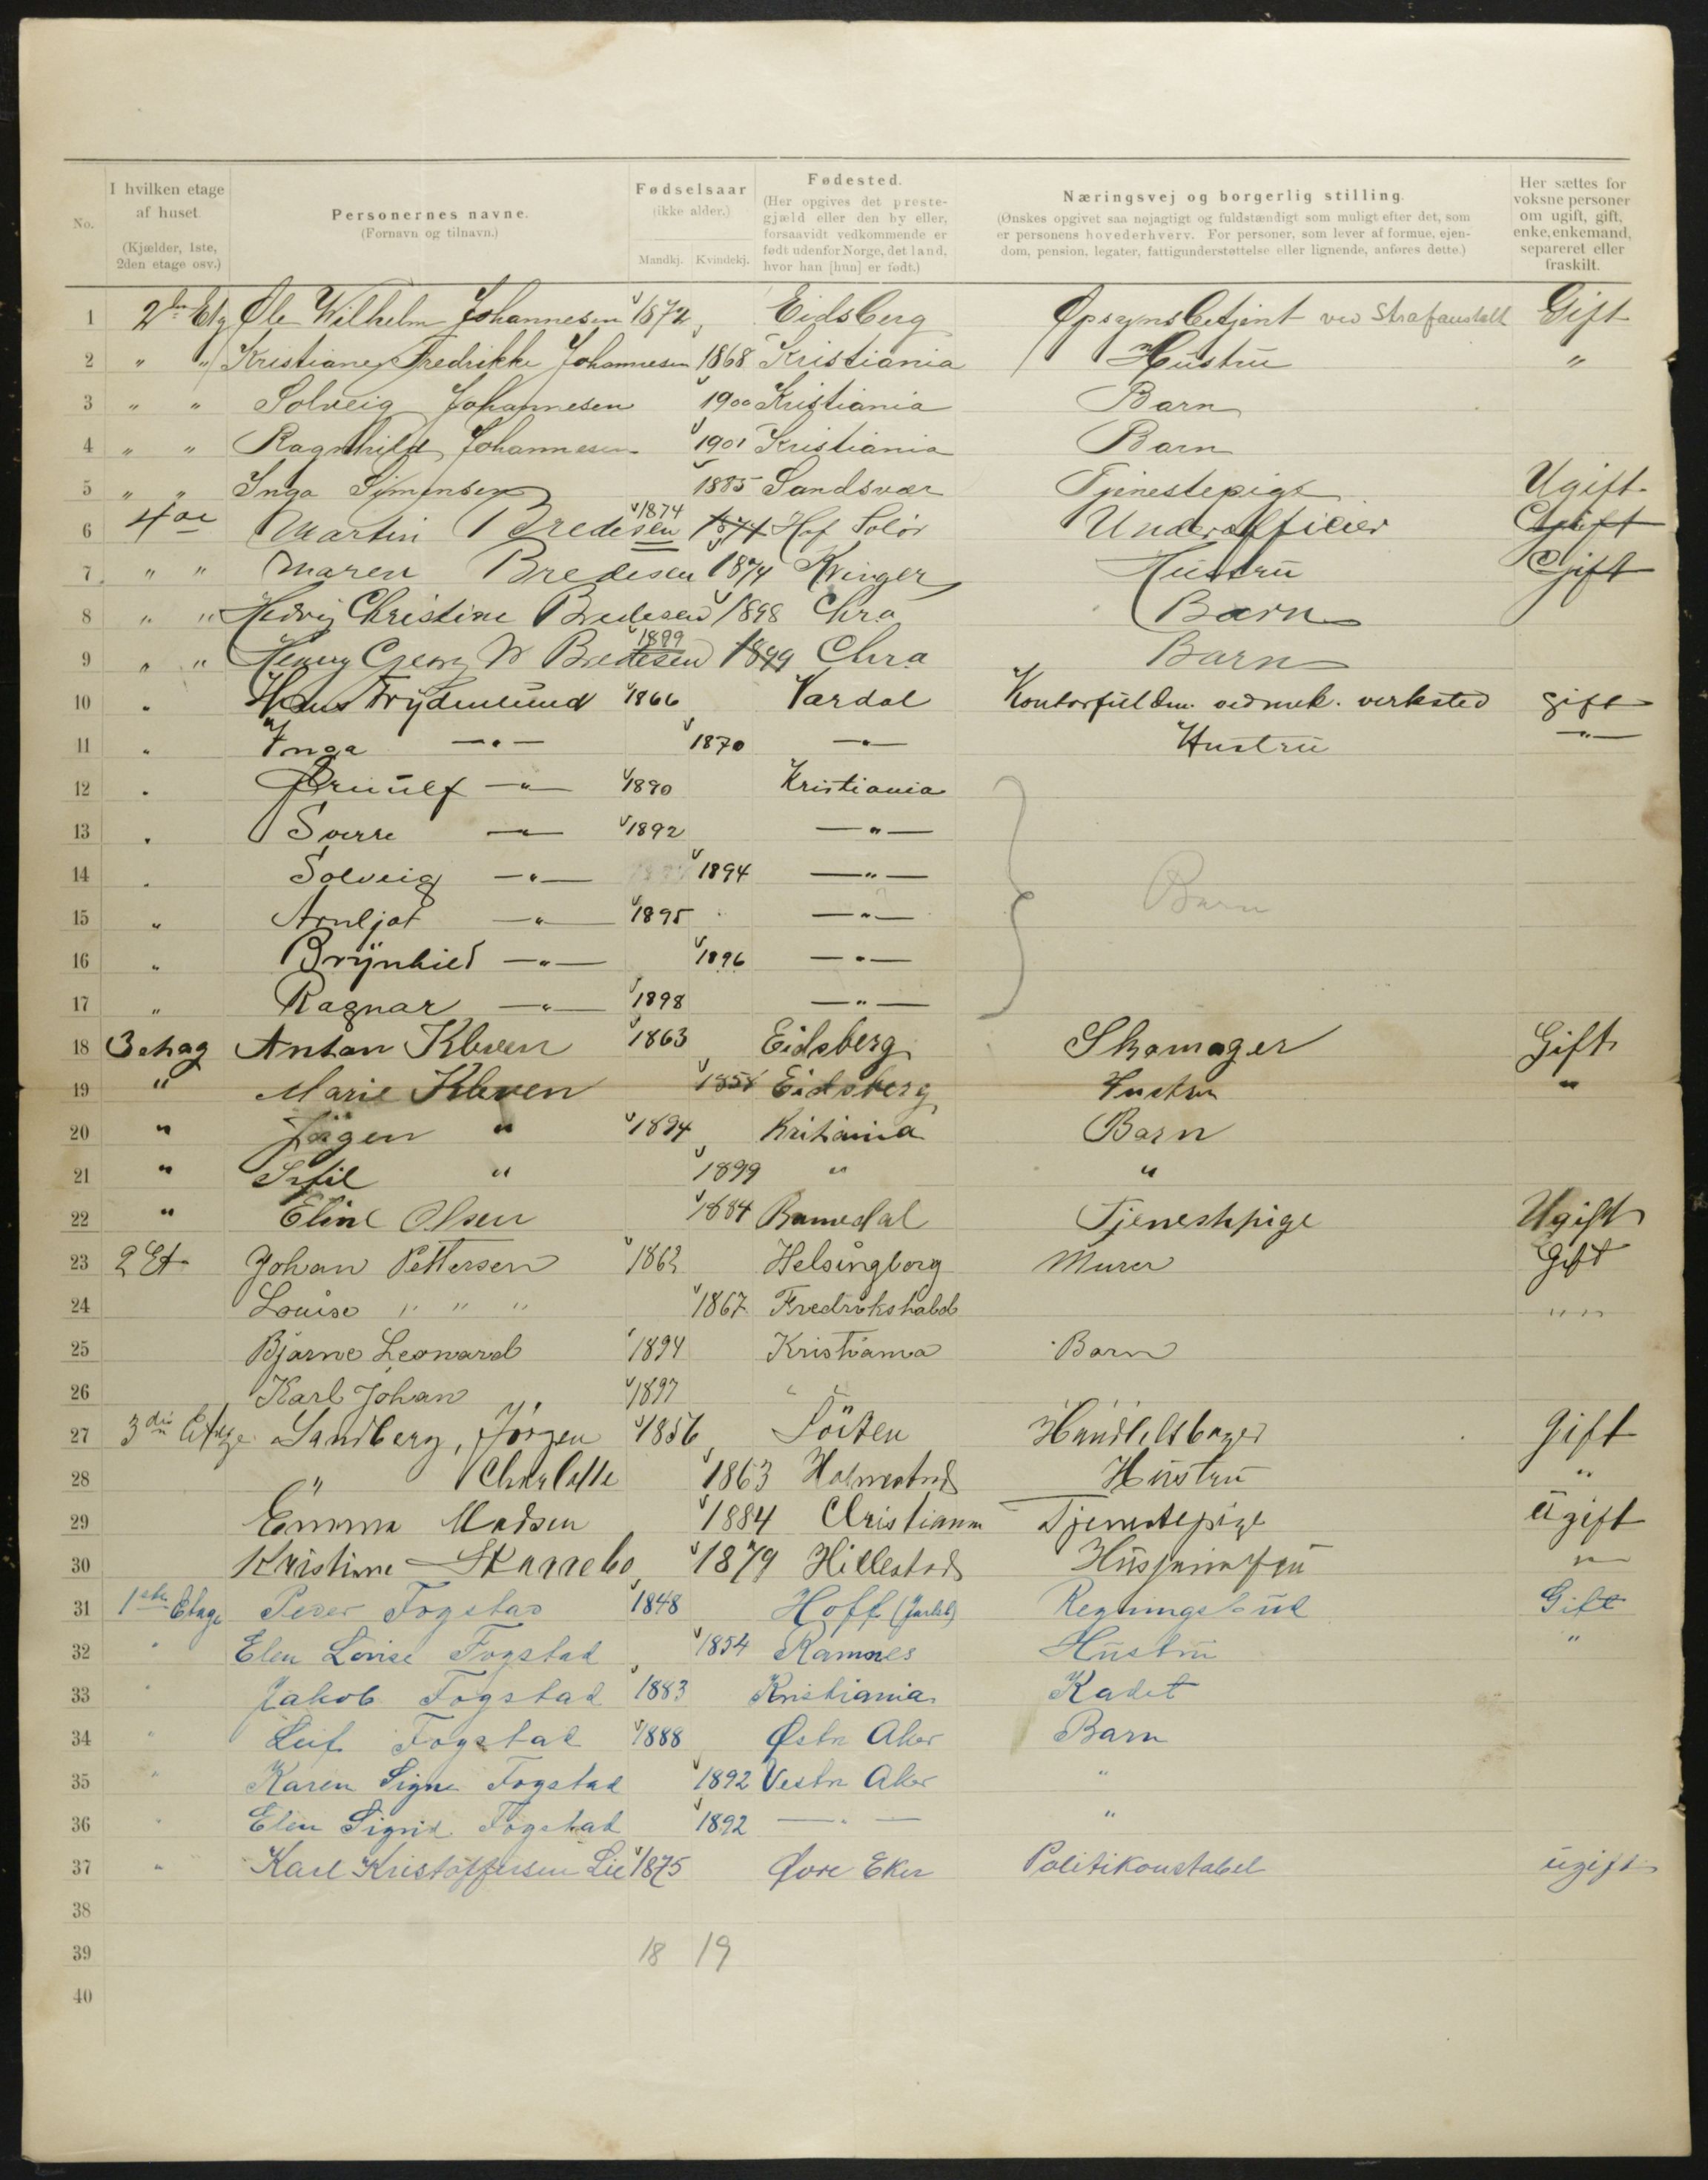 No.
I hvilken etage af huset.
(Kjælder, 1ste, 2den etage osv.)
Personernes navne.
(Fornavn og tilnavn.)
Fødselsaar
(ikke alder.)
Mandkj. Kvindekj.
Fødested.
(Her opgives det prestegjæld eller den by eller, forsaavidt vedkommende er født udenfor Norge, det land, hvor han [hun] er født.)
Næringsvej og borgerlig stilling.
(Ønskes opgivet saa nøjagtigt og fuldstændigt som muligt efter det, som er personens hovederhverv. For personer, som lever af formue, ejendom, pension, legater, fattigunderstøttelse eller lignende, anføres dette.)
Her sættes for voksne personer om ugift, gift, enke, enkemand, separeret eller fraskilt.
1 2den Etg Ole Wilhelm Johannesen 1872 Eidsberg Opsynsbetjent ved Strafanstalt Gift
2 " " Kristiane Fredrikke Johannesen 1868 Kristiania Hustru "
3 " " Solveig Johannesen 1900 Kristiania Barn
4 " " Ragnhild Johannesen 1901 Kristiania Barn
5 " " Inga Simensen 1885 Sandsvær Tjenestepige Ugift
6 4de Martin Bredesen 1874 1874 Hof Solør Underofficier Gift
7 " " Maren Bredesen 1874 Kvinger Hustru Gift
8 " " Hedvig Christine Bredesen 1898 Chra Barn
9 " " Henry Georg W Bredesen 1899 1899 Chra Barn
10 " Hans Frydenlund 1866 Vardal Kontorfuldm. ved mek. verksted gift
11 " Inga —"— 1870 —"— Hustru —"—
12 " Ørnulf —"— 1890 Kristiania
13 " Sverre —"— 1892 —"—
14 " Solveig —"— 1894 —"— Barn
15 " Arnljot —"— 1895 —"—
16 " Brynhild —"— 1896 —"—
17 " Ragnar —"— 1898 —"—
18 3 etag Anton Kleven 1863 Eidsberg Skomager Gift
19 " Marie Kleven 1858 Eidsberg Hustru "
20 " Jøgen " 1894 Kritiania Barn
21 " " 1899 " "
22 " Eline Olsen 1884 Romedal Tjenestpige Ugift
23 2 Et Johan Pettersen 1862 Helsingborg Murer Gift
24 Louise " " " 1867 Fredrikshald " "
25 Bjarne Leonard 1894 Kristiania Barn
26 Karl Johan 1897 " "
27 3die Etage Sandberg, Jørgen 1856 Løiten Handelsbager Gift
28 " Charlotte 1863 Holmestrand Hustru "
29 Emma Madsen 1884 Christiania Tjenestepige ugift
30 Kristine Skarrebo 1879 Hillestad Husjomfru "
31 1ste Etage Peder Fogstad 1848 Hoff (Jarlsb) Regningsbud Gift
32 " Elen Lovise Fogstad 1854 Ramnes Hustru "
33 " Jakob Fogstad 1883 Kristiania Kadet
34 " Leif Fogstad 1888 Østre Aker Barn
35 " Karen Signe Fogstad 1892 Vestre Aker "
36 " Elen Sigrid Fogstad 1892 —"— "
37 " Karl Kristoffersen Lie 1875 Øvre Eker Politikonstabel ugift
38
39 18 19
40